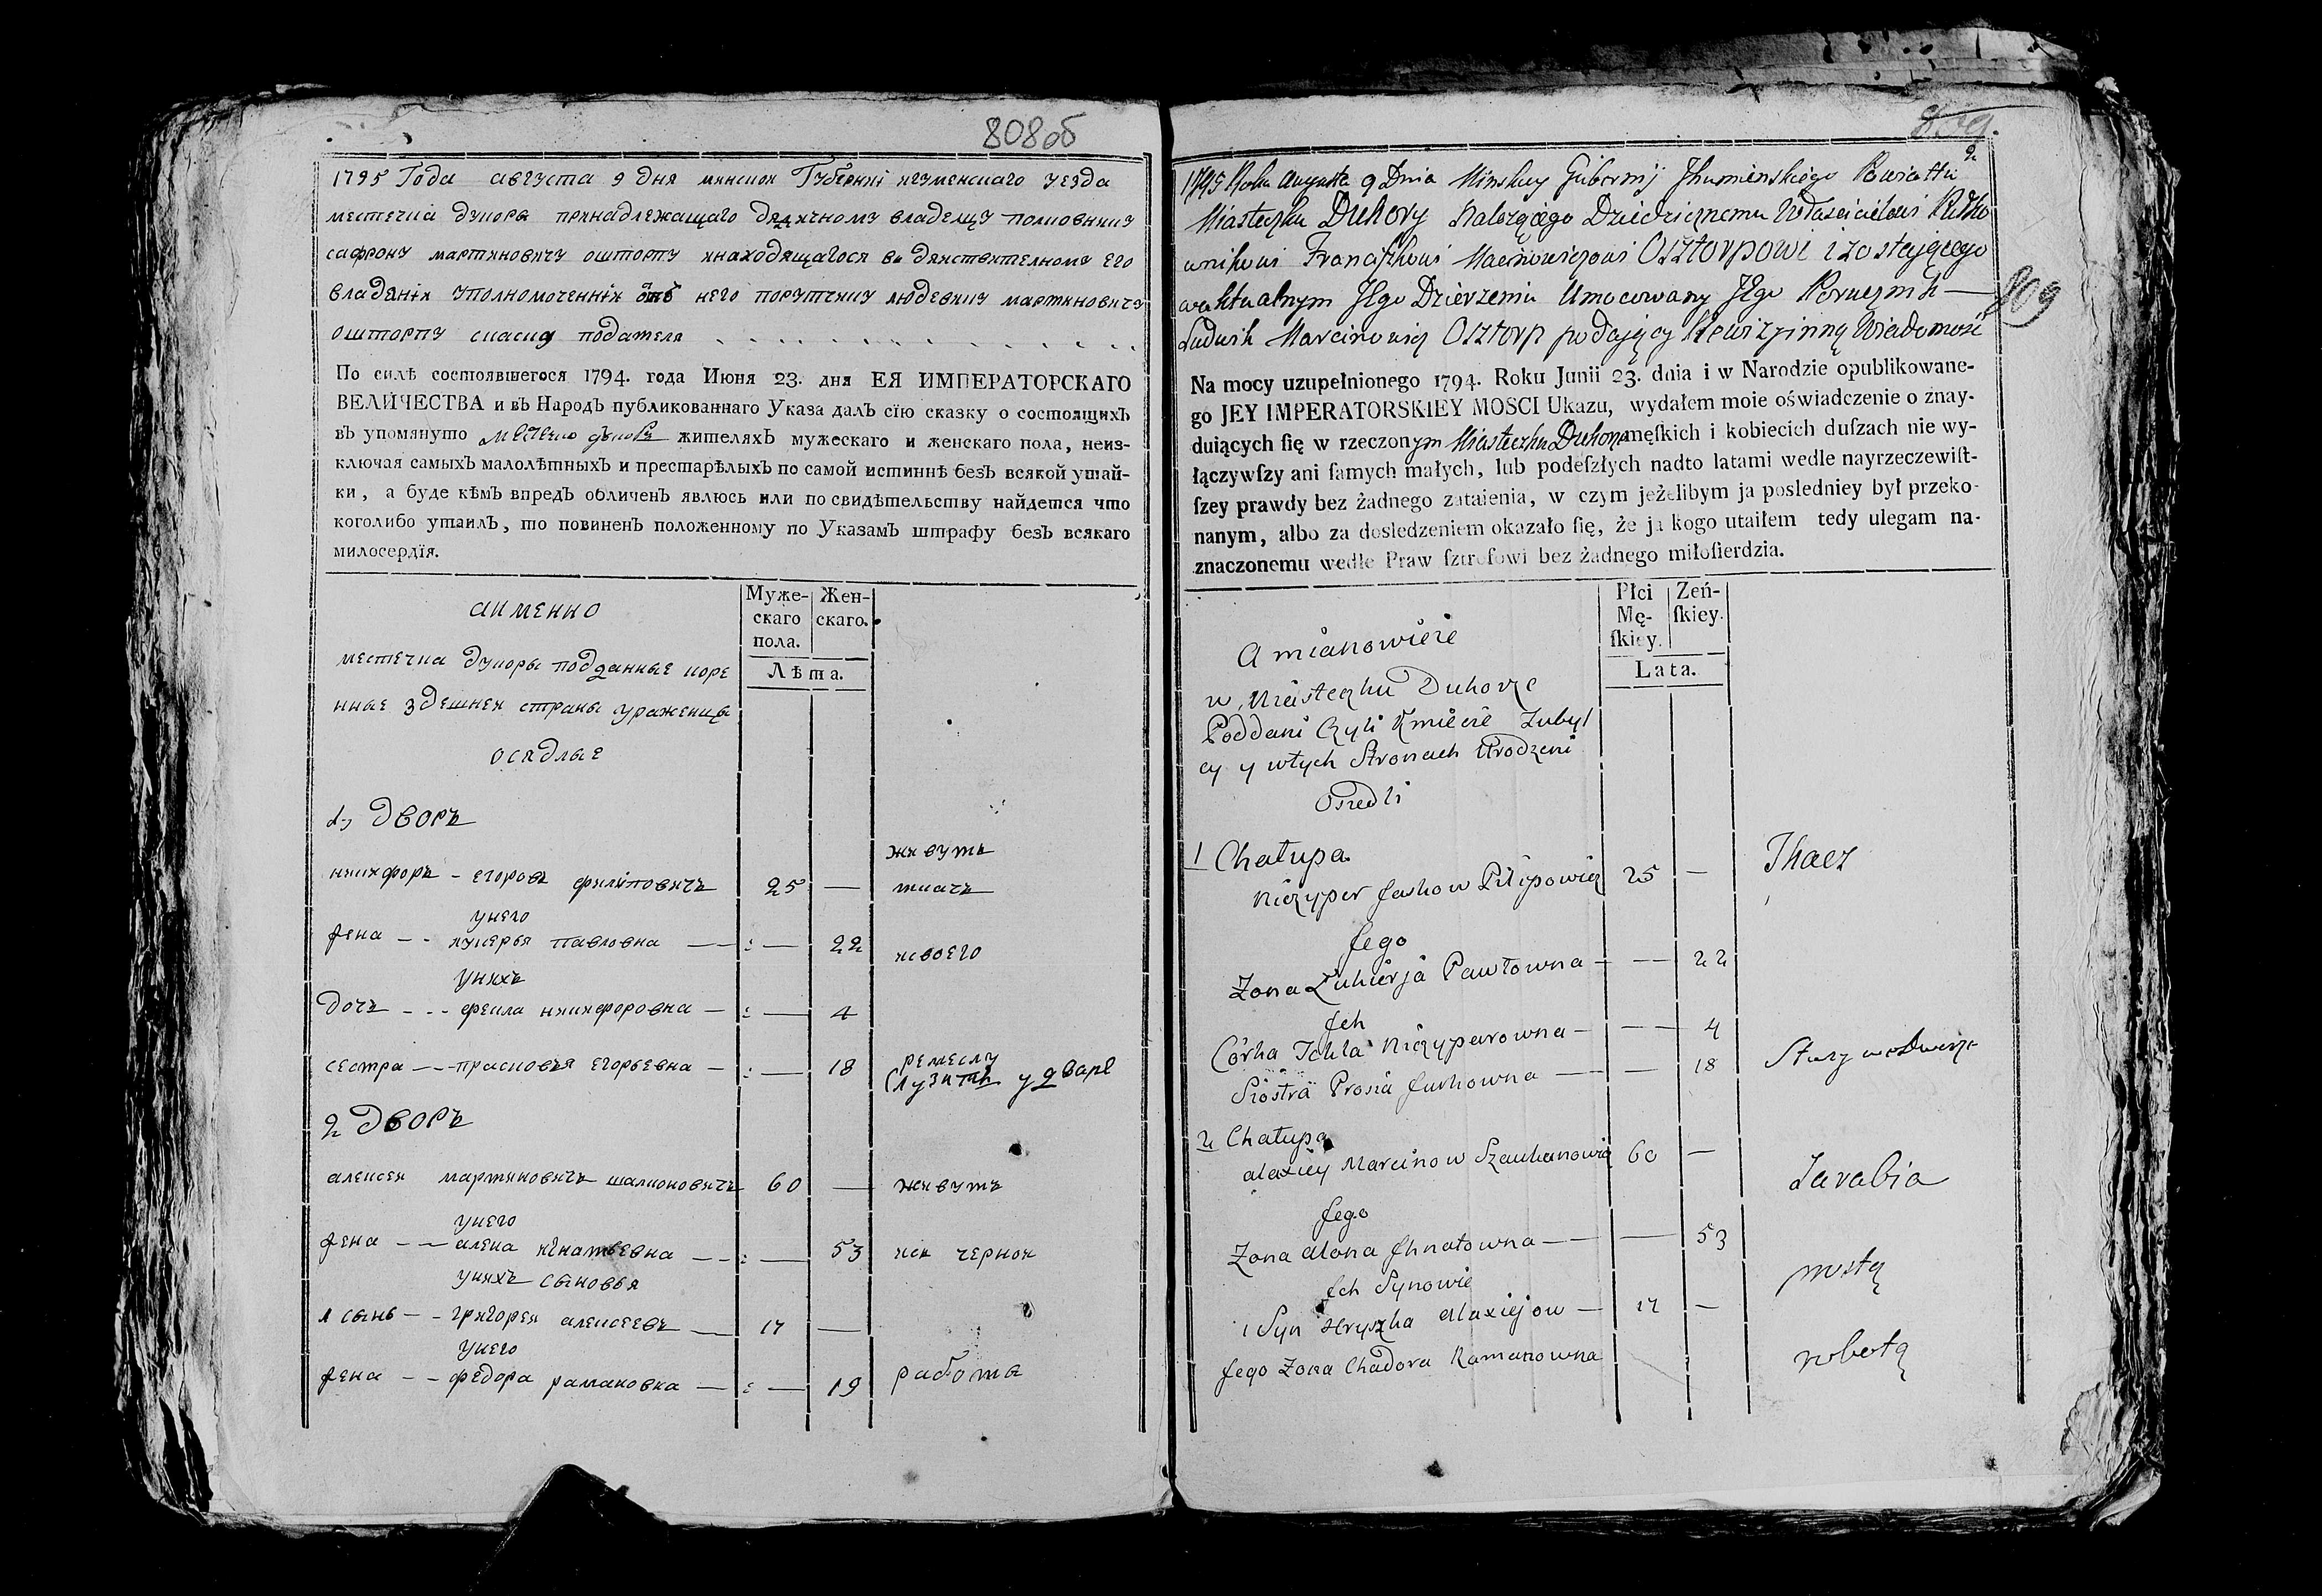 808об
1795 Года августа 9 дня минской Губерніі игуменскаго уезда
местечка дукоры принадлежащаго дедичному владелцу полковнику
сафрону мартиновичу ошторпу инаходящагося во действителному его
владеніи уполномоченній отъ него порутчикъ людевикъ мартиновичъ
ошторпъ сказку подателя
По силѣ состоявшегося 1794. года Июня 23. дня ЕЯ ИМПЕРАТОРСКАГО
ВЕЛИЧЕСТВА и въ Народъ публикованнаго Указа далъ сїю сказку о состоящихъ
въ упомянуто жителяхъ мужескаго и женскаго пола, неиз-
ключая самыхъ малолѣтныхъ и престарѣлыхъ по самой истиннѣ безъ всякой утай-
ки, а буде кѣмъ впредъ обличенъ явлюсь или по свидѣтельству найдется что
коголибо утаилъ, то повиненъ положенному по Указамъ штрафу безъ всякаго
милосердїя.
аименно
Муже-
скаго
пола.
Жен-
скаго.
Лѣта.
местечка дукоры подданные коре
нные здешней страны уроженцы
оседлые
1, дворъ
никифоръ - егоровъ филиповичъ 25 —
живутъ
ткачъ
унего
жена - - лукерья павловна — : — 22
исвоего
унихъ
дочъ - - - фекла никифоровна — : — 4
сестра - - - прасковья егорьевна — : — 18
ремеслу
Слузитъ у дваре
2 дворъ
алексей мартиновичъ шалюковичъ 60 — живутъ
унего
жена - - алена игнатьевна — : — 53 изъ черной
унихъ сыновья
1 сынъ - - григорей алексеевъ — 17 —
унего
жена - - федора рамановна — : — 19 работы
809
1795 Roku Augusta 9 Dnia Minskiey Gubernij Jhumienskiego Powiattu
Miasteczka Dukory Nalezącego Dziedzicznemu Właścicielowi Pułko
wnikowi Franciszkowi Marcinowiczowi Osztorpowi i zostającego
w aktualnym JEgo Dzierzeniu Umocowany JEgo Porucznik —
Ludwik Marcinowicz Osztorp podający Rewizyinną Wiadomość
Na mocy uzupełnionego 1794. Roku Junii 23. dnia i w Narodzie opublikowane-
go JEY IMPERATORSKIEY MOSCI Ukazu, wydałem moie oświadczenie o znay-
duiących ſię w rzeczonym Miasteczku Dukorze męſkich i kobiecich duſzach nie wy-
łączywſzy ani ſamych małych, lub podeſzłych nadto latami wedle nayrzeczewiſt-
ſzey prawdy bez żadnego zataienia, w czym jeżelibym ja posledniey był przeko-
nanym, albo za dosledzeniem okazało ſię, że ja kogo utaiłem tedy ulegam na-
znaczonemu wedle Praw ſztrofowi bez żadnego miłoſierdzia.
A mianowicie
Płci
Mę-
ſkiey.
Zeń-
ſkiey.
Lata.
w Miasteczku Dukorze
Poddani Czyli Kmiecie Zubyl
cy y wtych Stronach Urodzeni
Osiedli
1 Chałupa.
Niczyper Jaskow Pilipowicz 25 — Tkacz
Jego
Zona Łukierja Pawłowna — — 22
Jch
Córka Tekla Niczyperowna — — 4
Siostra Prosia Jaskowna — — 18 Służy we Dworze
2 Chałupa
Alaxiey Marcinow Szaukanowicz 60 — Zarabia
Jego
Zona Alona Jhnatowna — — 53
Jch Synowie
prostą
1 Syn Hryszka Alaxiejow — 17 —
Jego Zona Chadora Ramanowna
robotą